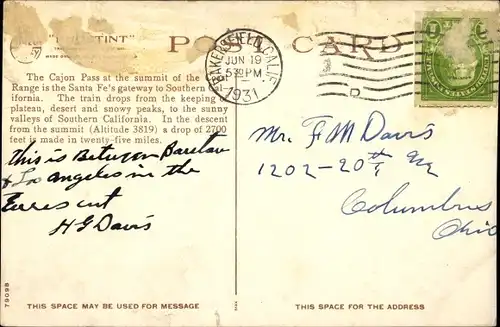 POST CARD
BAKERSFIELD, CALIF.
JUN 19
5 30 PM
1931
The Cajon Pass at the summit of the
Range is the Santa Fe's gateway to Southern Cal-
ifornia. The train drops from the keeping of
plateau, desert and snowy peaks, to the sunny
valleys of Southern California. In the descent
from the summit (Altitude 3819) a drop of 2700
feet is made in twenty-five miles.
this is Between Barstow
& Los angeles in the
H G Davis
Mr. F M Davis
1202-20th
Columbus
Ohio
7909B
THIS SPACE MAY BE USED FOR MESSAGE
THIS SPACE IS FOR THE ADDRESS